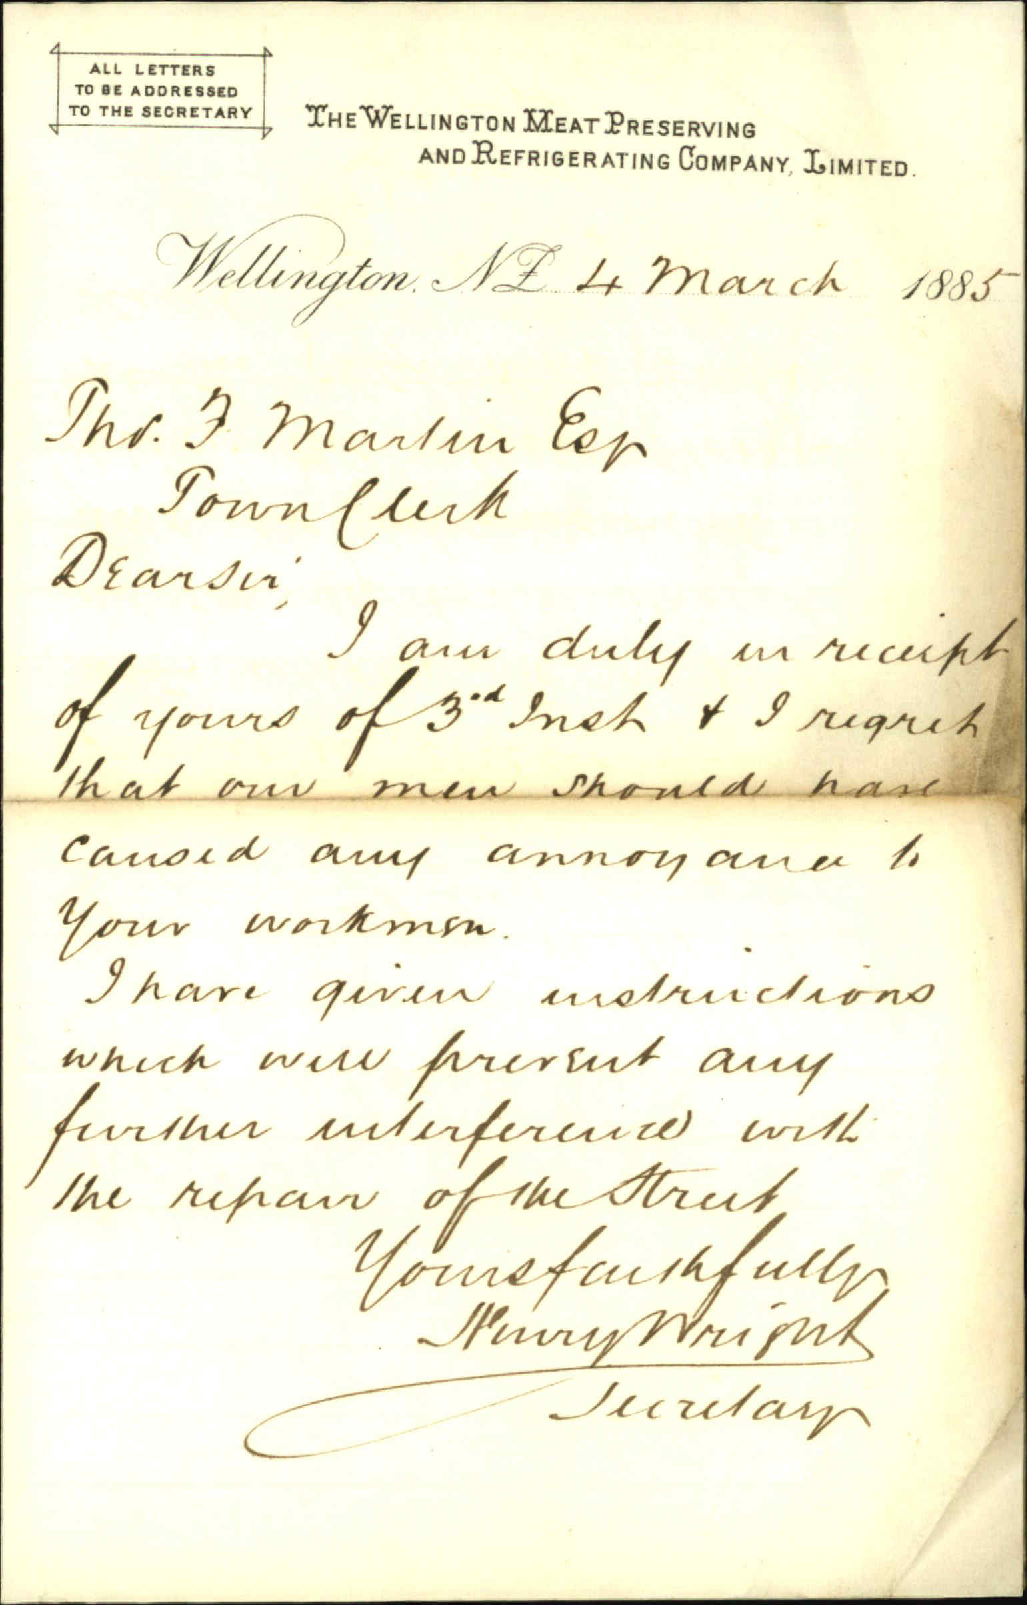 ALL LETTERS
TO BE ADDRESSED
TO THE SECRETARY
THE WELLINGTON MEAT PRESERVING
AND REFRIGERATING COMPANY, LIMITED.
Wellington. NZ 4 March 1885
Tho. F Martin Esq
Town Clerk
Dear Sir,
I am duly in receipt
of yours of 3rd Inst & I regret
that our men should have
caused any annoyance to
your workmen.
I have given instructions
which will prevent any
further interference with
the repair of the Street
Yours faithfully
Henry Wright
Secretary